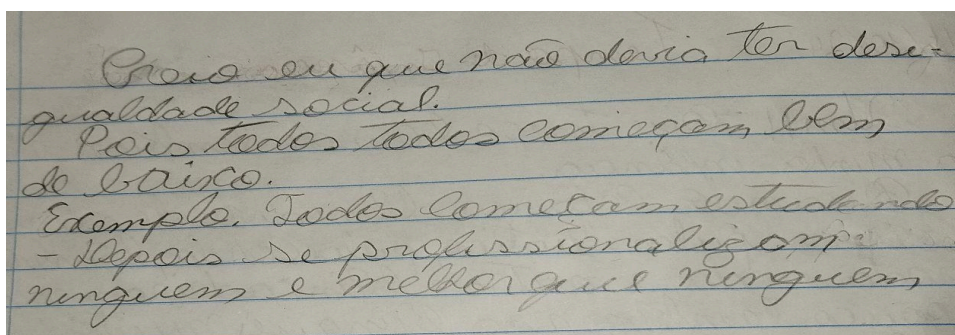 Creio eu que não devia ter desi-
gualdade social.
Pois todos todos começam bem
de baixo.
Exemplo. Todos começam estudando
- Depois se profissionalizam.
ninguem e melhor que ninguem